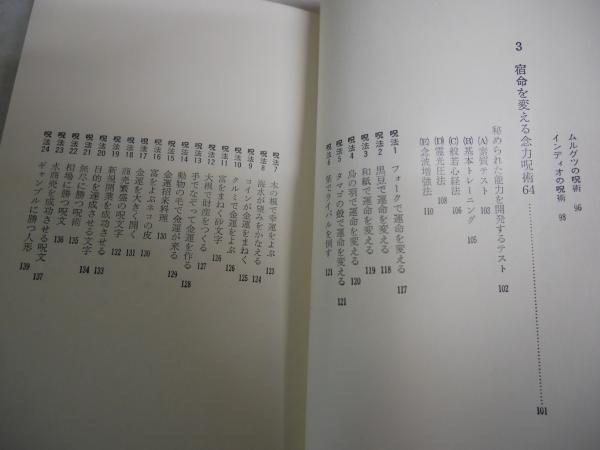 ムルグツの呪術 96
インディオの呪術 98
3 宿命を変える念力呪術64 101
秘められた能力を開発するテスト 102
(A)素質テスト 103
(B)基本トレーニング 105
(C)般若心経法 106
(D)霊光圧法 108
(E)念波増強法 110
呪法1 フォークで運命を変える 117
呪法2 黒豆で運命を変える 118
呪法3 和紙で運命を変える 119
呪法4 鳥の羽で運命を変える 120
呪法5 タマゴの殻で運命を変える 121
呪法6 葉でライバルを倒す 121
呪法7 木の根で幸運をよぶ 123
呪法8 海水が望みをかなえる 124
呪法9 コインが金運をまねく 125
呪法10 クルミで金運をよぶ 126
呪法11 富をまねく砂文字 126
呪法12 大根で財産をつくる 127
呪法13 手でなぞって金運を作る 128
呪法14 動物の毛で金運が来る 129
呪法15 金運招来料理 130
呪法16 富をよぶネコの皮 130
呪法17 金運を大きく開く 131
呪法18 商売繁盛の呪文字 131
呪法19 新規開業を成功させる 132
呪法20 目的を達成させる文字 133
呪法21 無尽に勝つ呪術 135
呪法22 相場に勝つ呪文 136
呪法23 水商売を成功させる呪文 137
呪法24 ギャンブルに勝つ人形 139